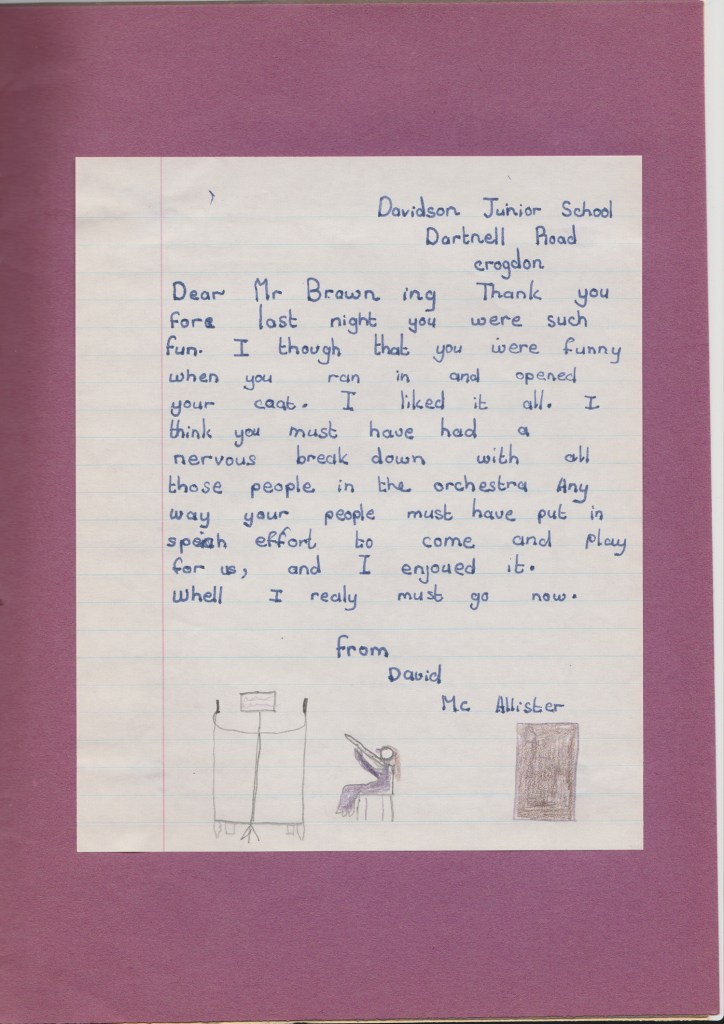 Davidson Junior School
Dartnell Road
crogdon
Dear Mr Brown ing Thank you
fore last night you were such
fun. I though that you were funny
when you ran in and opened
your coat. I liked it all. I
think you must have had a
nervous break down with all
those people in the orchestra Any
way your people must have put in
effort to come and play
for us, and I enjoued it.
Whell I realy must go now.
from
David
Mc Allister